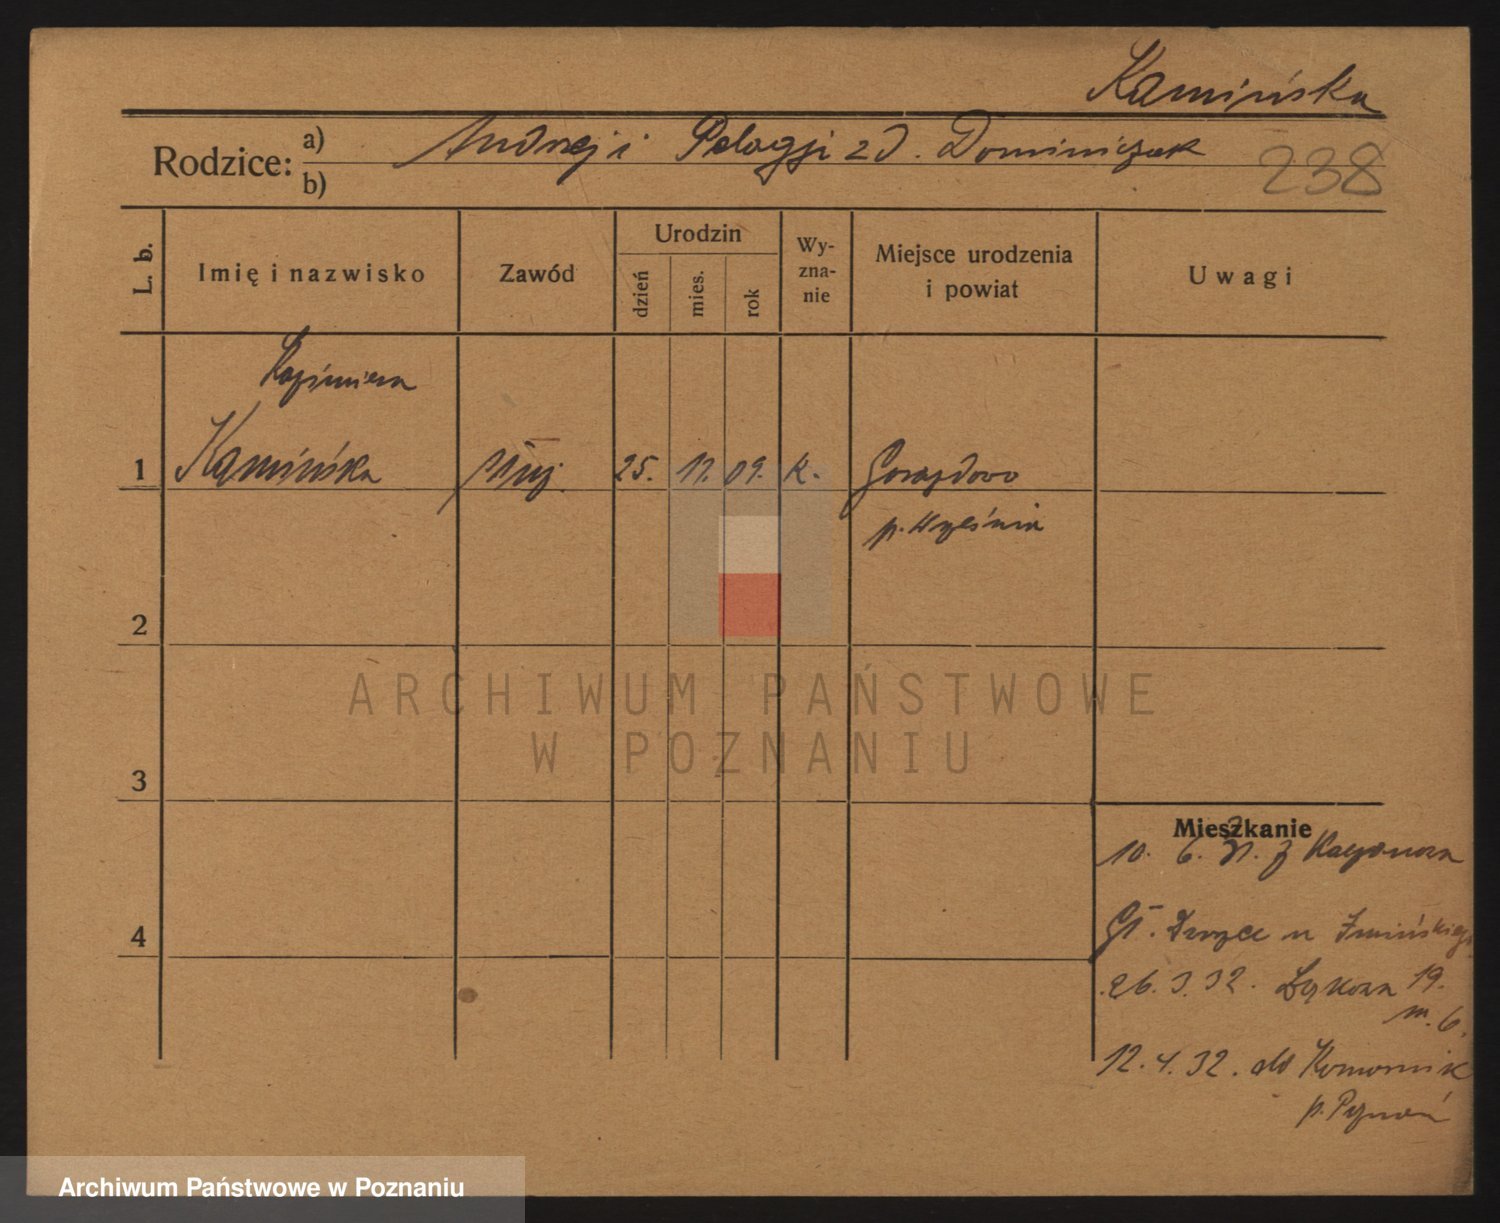 Kamińska
Rodzice: a) Andrzej i Pelagji zd. Dominiczak
b)
238
L. b.
Imię i nazwisko
Zawód
Urodzin
dzień
mies.
rok
Wy-
zna-
nie
Miejsce urodzenia
i powiat
Uwagi
Kazimiera
1 Kamińska służ 25. 11. 09. k. Gorazdowo
p. Września
2
3
4
ARCHIWUM PAŃSTWOWE
W POZNANIU
Mieszkanie
10. 6. 31. z
26. 3. 32. Łąkowa 19.
m. 6.
12. 4. 32. do Komornik
p. Poznań
Archiwum Państwowe w Poznaniu